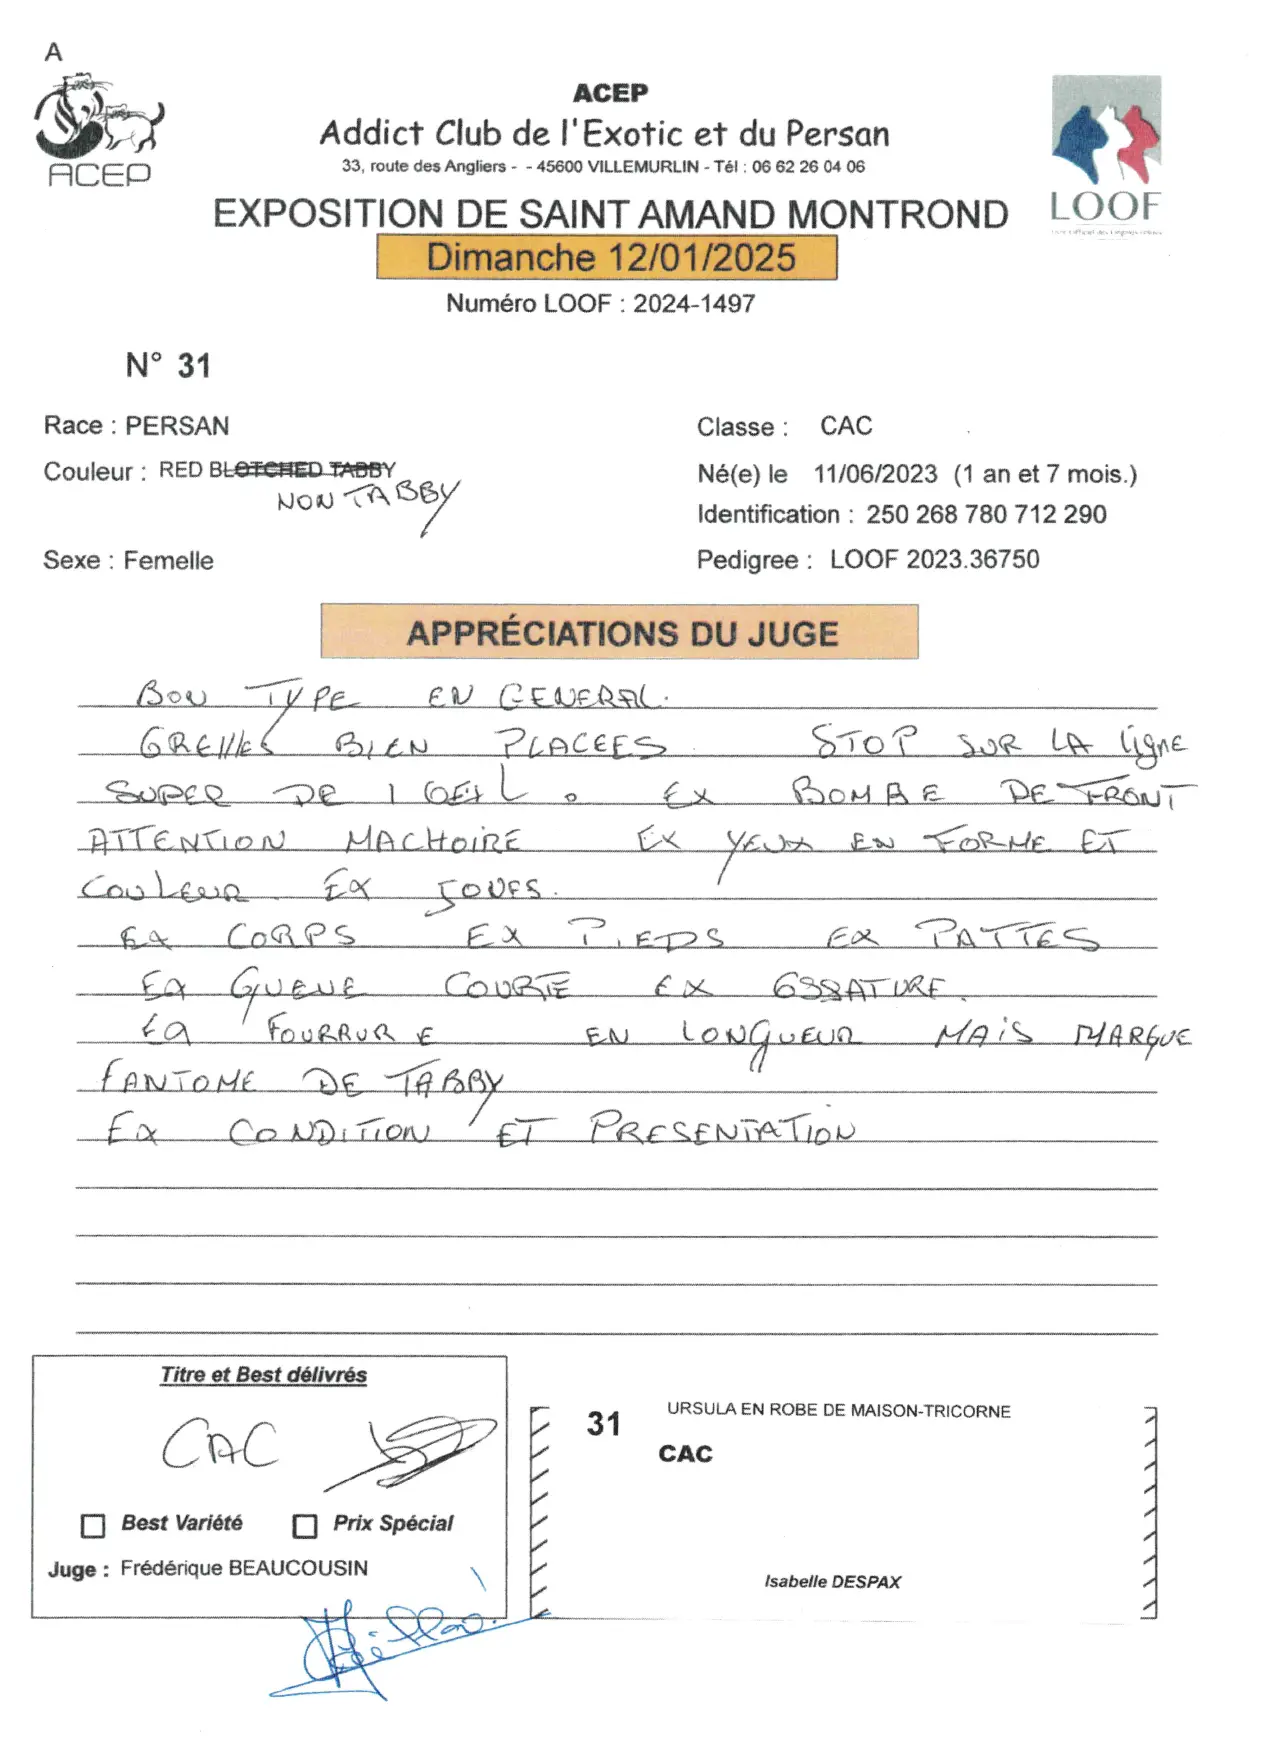 A
ACEP
ACEP
Addict Club de l'Exotic et du Persan
33, route des Angliers - - 45600 VILLEMURLIN - Tél : 06 62 26 04 06
LOOF
EXPOSITION DE SAINT AMAND MONTROND
Dimanche 12/01/2025
Numéro LOOF : 2024-1497
N° 31
Race : PERSAN
Classe : CAC
Couleur : RED BLOTCHED TABBY
NON TABBY
Né(e) le 11/06/2023 (1 an et 7 mois.)
Identification : 250 268 780 712 290
Sexe : Femelle
Pedigree : LOOF 2023.36750
APPRÉCIATIONS DU JUGE
BON TYPE EN GENERAL.
GREILLES BIEN PLACEES STOP SUR LA ligne
SUPER DE l OEIL. EX BOMBE DE FRONT
ATTENTION MACHOIRE EX YEUX EN FORME ET
COULEUR EX JOUES.
EX CORPS EX PIEDS EX PATTES
EX QUEUE COURTE EX OSSATURE.
EX FOURRURE EN LONGUEUR MAIS MARQUE
FANTOME DE TABBY
EX CONDITION ET PRESENTATION
Titre et Best délivrés
CAC
Best Variété Prix Spécial
Juge : Frédérique BEAUCOUSIN
31
URSULA EN ROBE DE MAISON-TRICORNE
CAC
Isabelle DESPAX